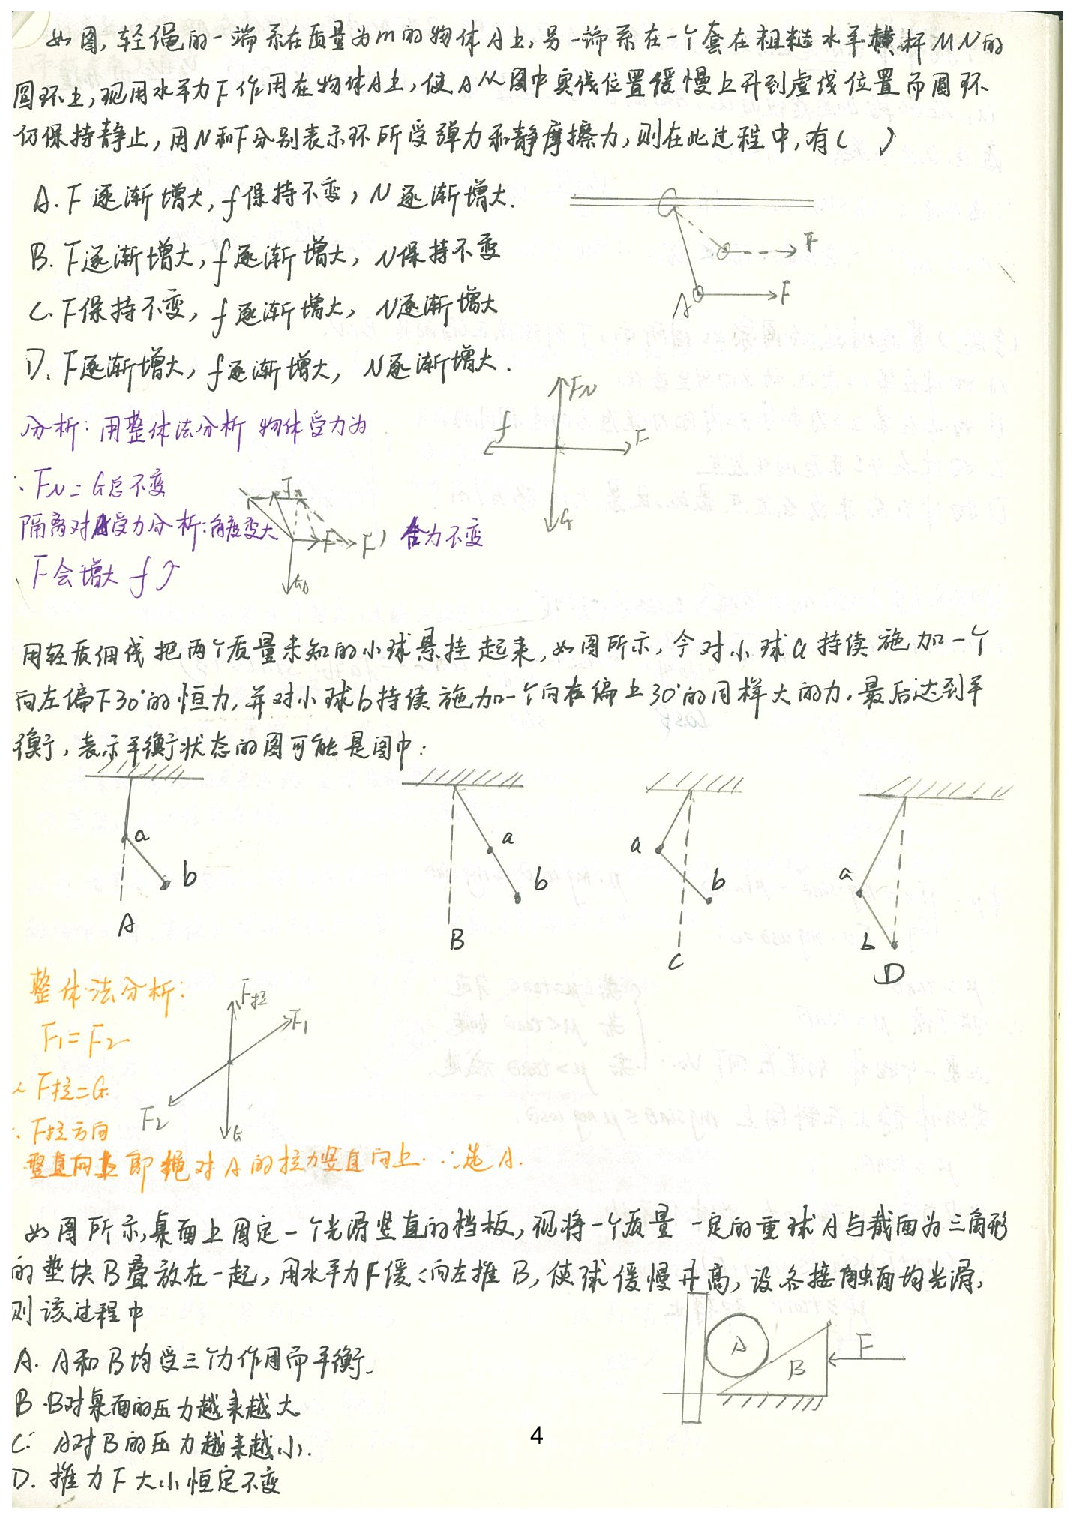 如图,轻绳的一端系在质量为m的物体A上,另一端系在一个套在粗糙水平横杆MN的
圆环上,现用水平力F作用在物体A上,使A从图中实线位置缓慢上升到虚线位置而圆环
仍保持静止,用N和f分别表示环所受弹力和静摩擦力,则在此过程中,有( )
A.F逐渐增大,f保持不变,N逐渐增大.
B.F逐渐增大,f逐渐增大,N保持不变
C.F保持不变,f逐渐增大,N逐渐增大
D.F逐渐增大,f逐渐增大,N逐渐增大.
F
A
F
分析:用整体法分析 物体受力为
FN
f
F
G
∴FN=G总不变
隔离对A受力分析:角度变大
F
F'
合力不变
∴F会增大 f↗
用轻质细线把两个质量未知的小球悬挂起来,如图所示,今对小球a持续施加一个
向左偏下30°的恒力,并对小球b持续施加一个向右偏上30°的同样大的力.最后达到平
衡,表示平衡状态的图可能是图中:
a
b
A
a
b
B
a
b
C
a
b
D
整体法分析:
F1=F2
∴F拉=G
∴F拉方向
竖直向上 即绳对A的拉力竖直向上.∴选A.
F拉
F1
F2
G
如图所示,桌面上固定一个光滑竖直的档板,现将一个质量一定的重球A与截面为三角形
的垫块B叠放在一起,用水平力F缓缓向左推B,使球缓慢升高,设各接触面均光滑,
则该过程中
A
B
F
A. A和B均受三个力作用而平衡.
B.B对桌面的压力越来越大
C. A对B的压力越来越小.
D. 推力F大小恒定不变
4